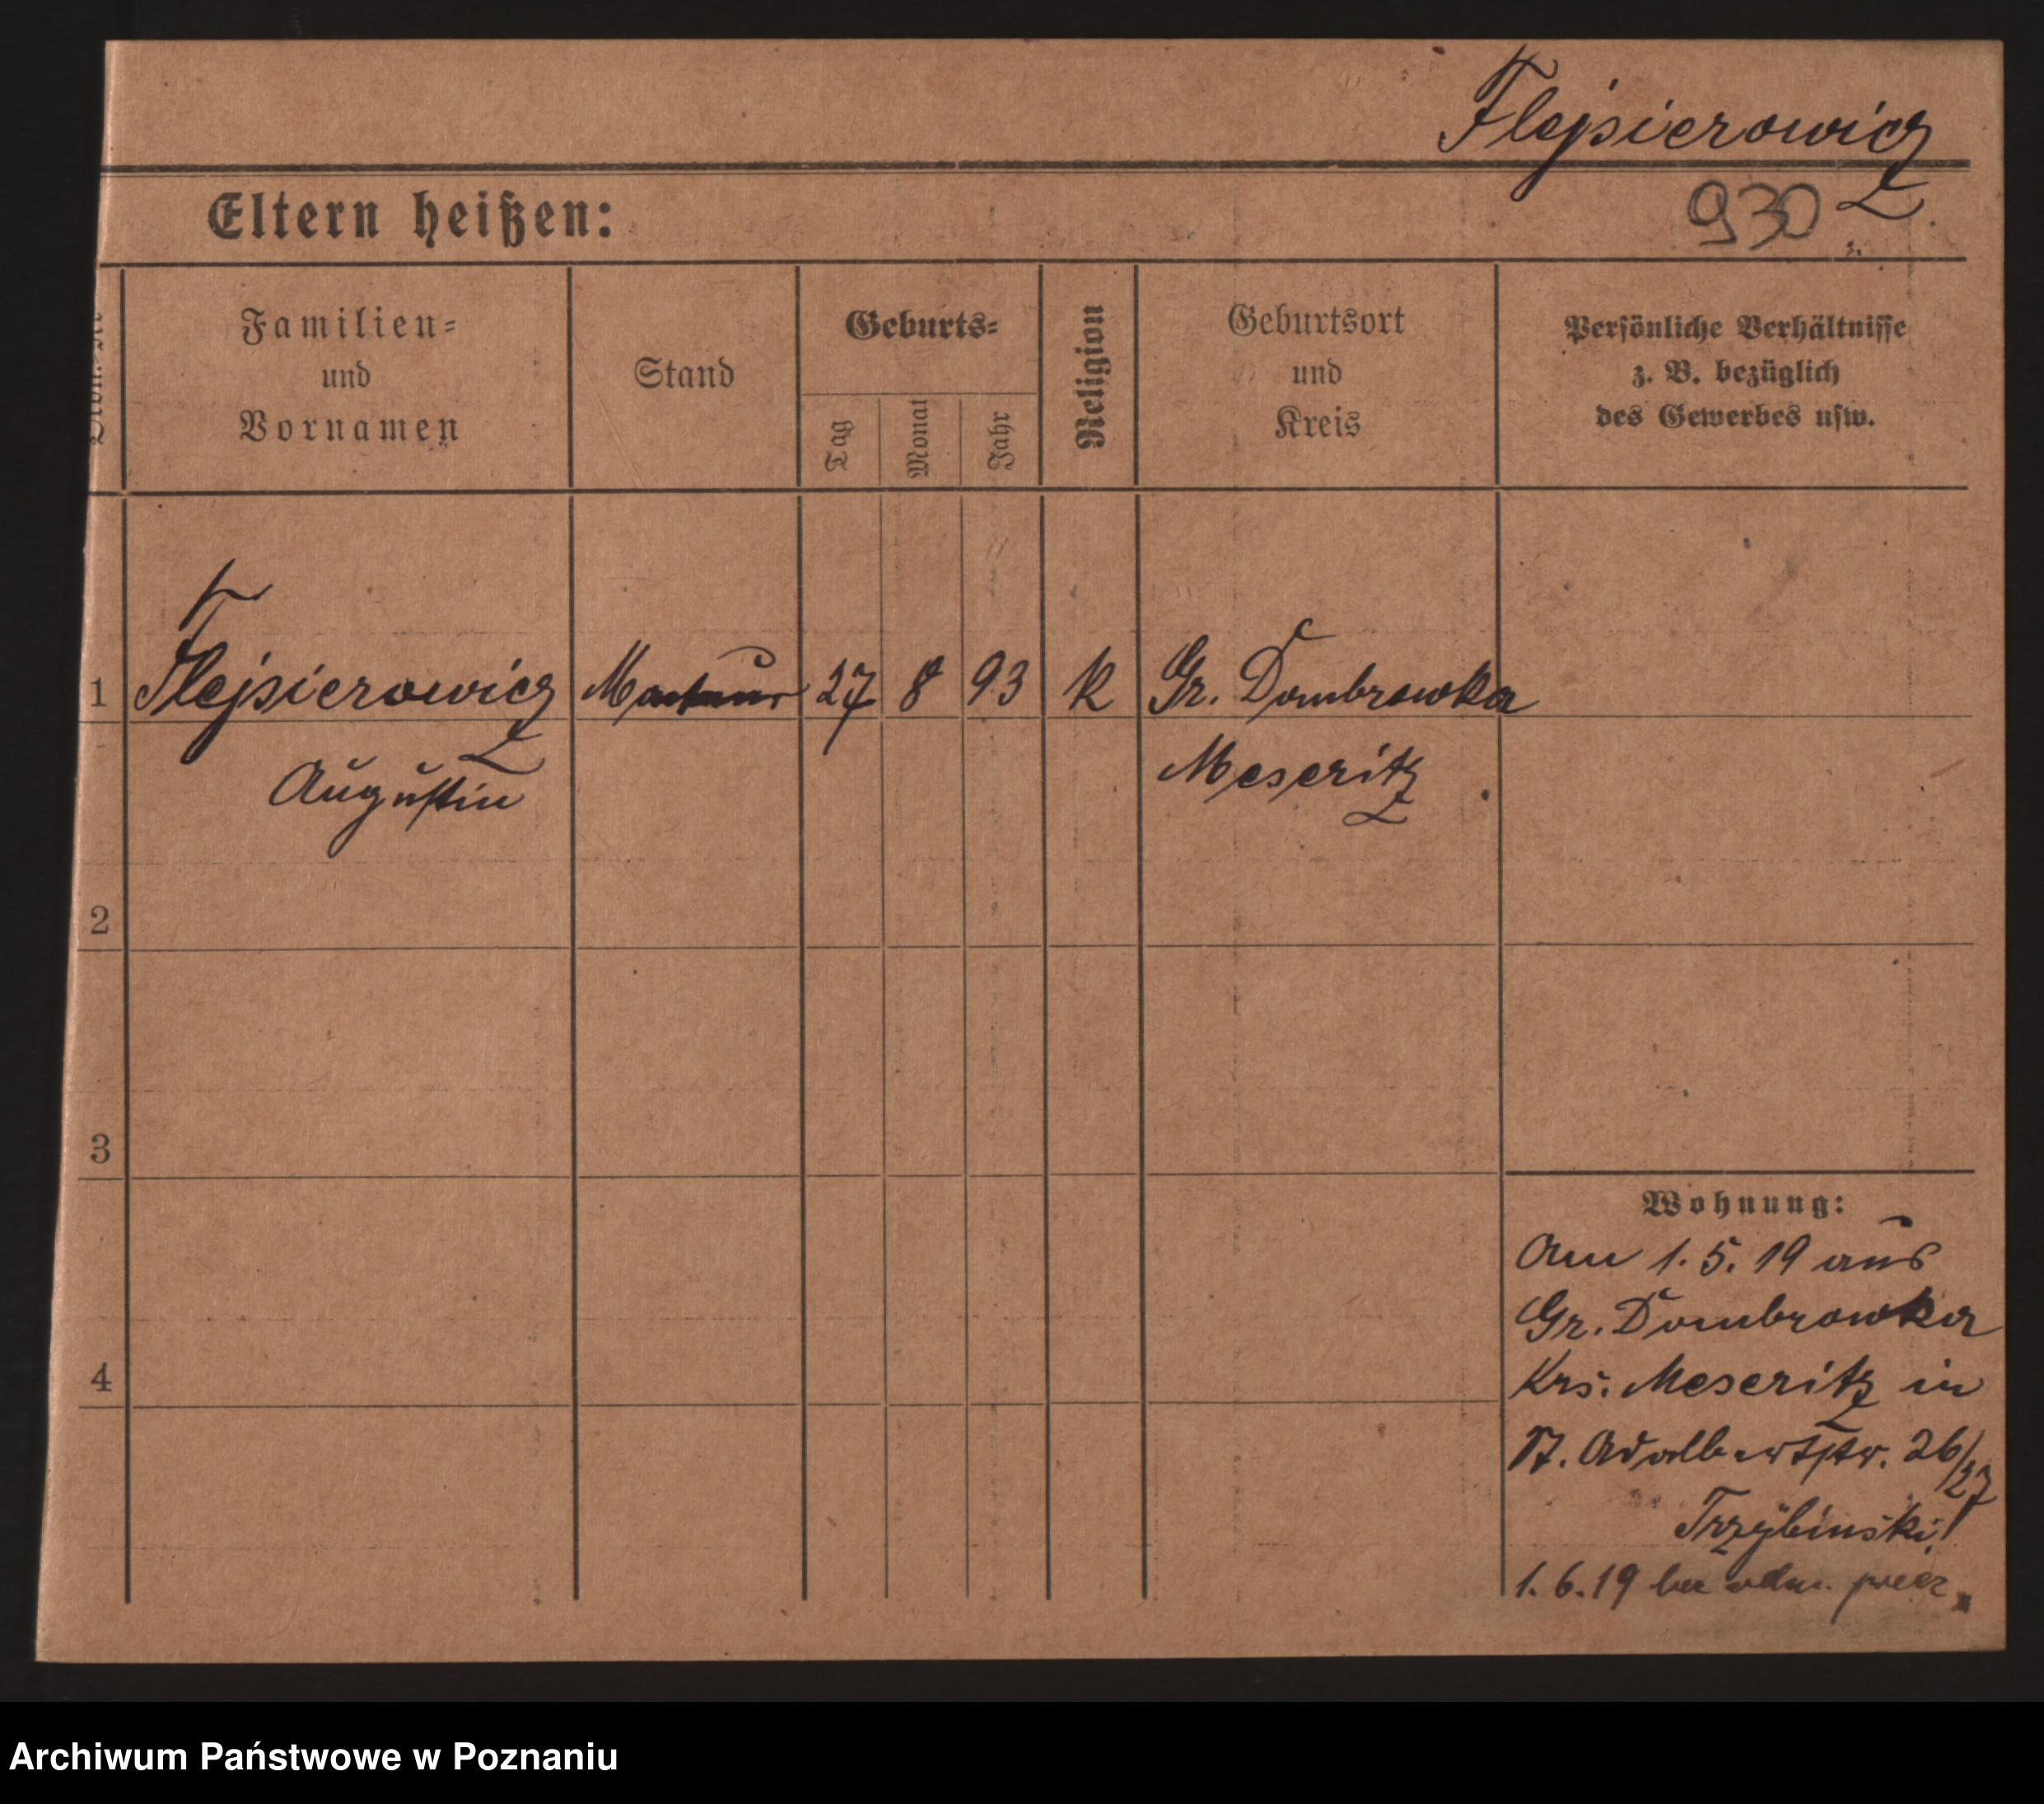 Flejsierowicz
Eltern heißen:
930
Familien-
und
Vornamen
Stand
Geburts-
Tag
Monat
Jahr
Religion
Geburtsort
und
Kreis
Persönliche Verhältnisse
z. B. bezüglich
des Gewerbes usw.
1 Flejsierowicz 27 8 93 K Gr. Dombrowka
Augustin Meseritz
2
3
4
Wohnung:
Am 1.5.19 aus
Gr. Dombrowka
Krs. Meseritz in
St. Adalbertstr. 26/27
Trzybinski
1.6.19
Archiwum Państwowe w Poznaniu